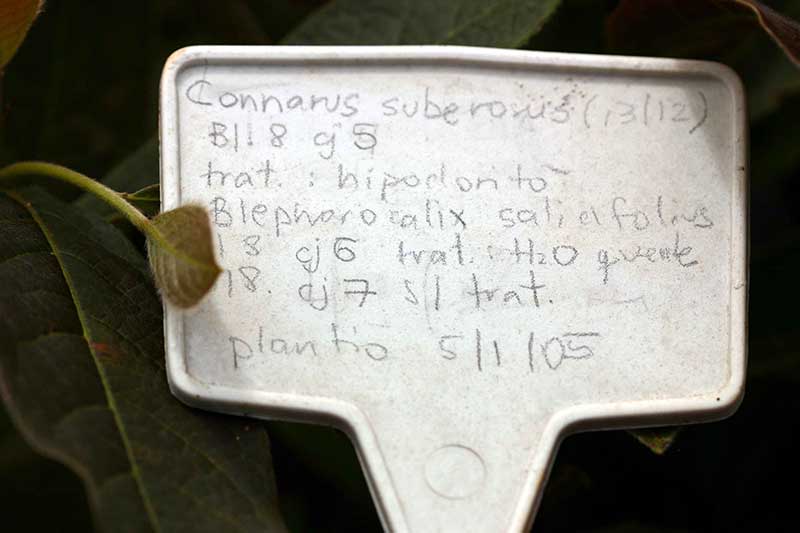 Connarus suberosus (13/12)
Bl: 8 cj 5
trat. : hipoclorito
Blepharocalix salicifolius
18 cj 6 trat. : H2O quente
18. cj 7 s/ trat.
plantio 5/1/05